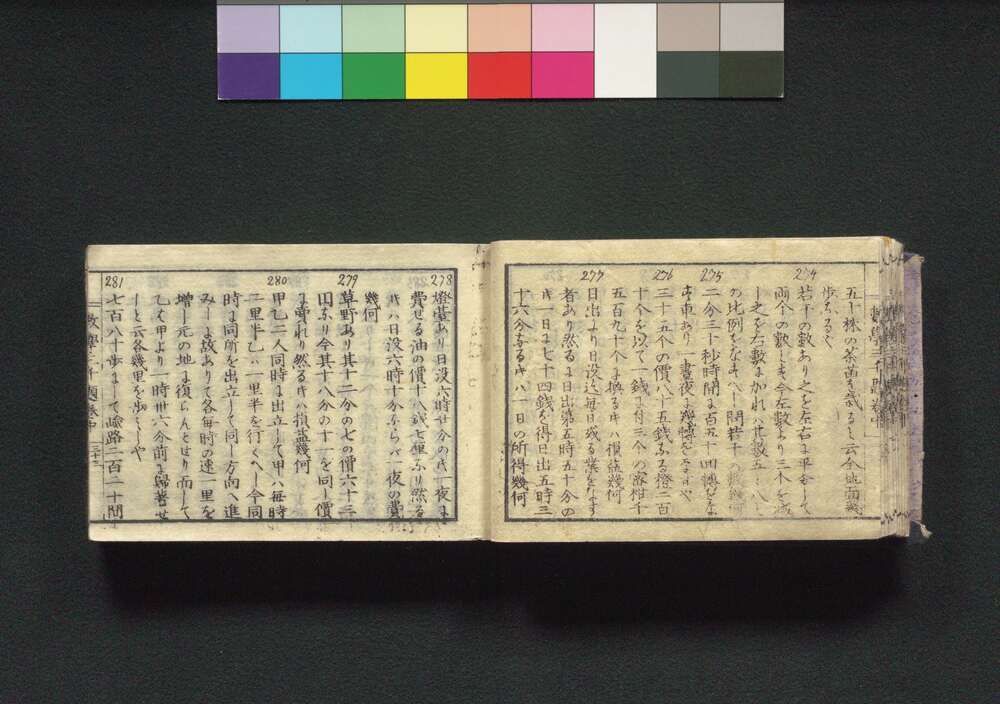 五十株の茶苗を栽るし云今地面幾
歩なるや
274
若干の數あり之を左右に平分して
両个の數し
今左數より三个を減
し之を右數に加れハ其數五
の比例をなすべし問若干の數幾何
275
二分三十秒時間に百五十回轉をな
す車あり一晝夜に幾轉をなすや
276
三十五个の價八十五錢なる橙二百
十个を以て一錢に付三个の蜜柑千
五百九十个に換るキハ損益幾何
277
日出より日没迄毎日或る業をなす
者あり然るに日出第五時五十分の
キ一日に七十四錢を得日出五時三
十六分なるキハ一日の所得幾何
278
燈臺あり日没六時廿分のキ一夜に
費せる油の價十八
然る
キハ日没六時十分ならバ一夜の費
幾何
279
草野あり其十二分の七の價六十三
圓なり今其十八分の十一を同し價
に賣れり然るキハ損益幾何
280
甲乙二人同時に出立して甲ハ毎時
二里半乙ハ一里半を行くべし今同
時に同所を出立して同し方向へ進
みしに故ありて各毎時の速一里を
増し元の地に復らんとせり而して
乙して甲より一時卅六分前に歸著せ
しと云各幾里を歩せしや
281
七百八十歩にして綫路二百二十間